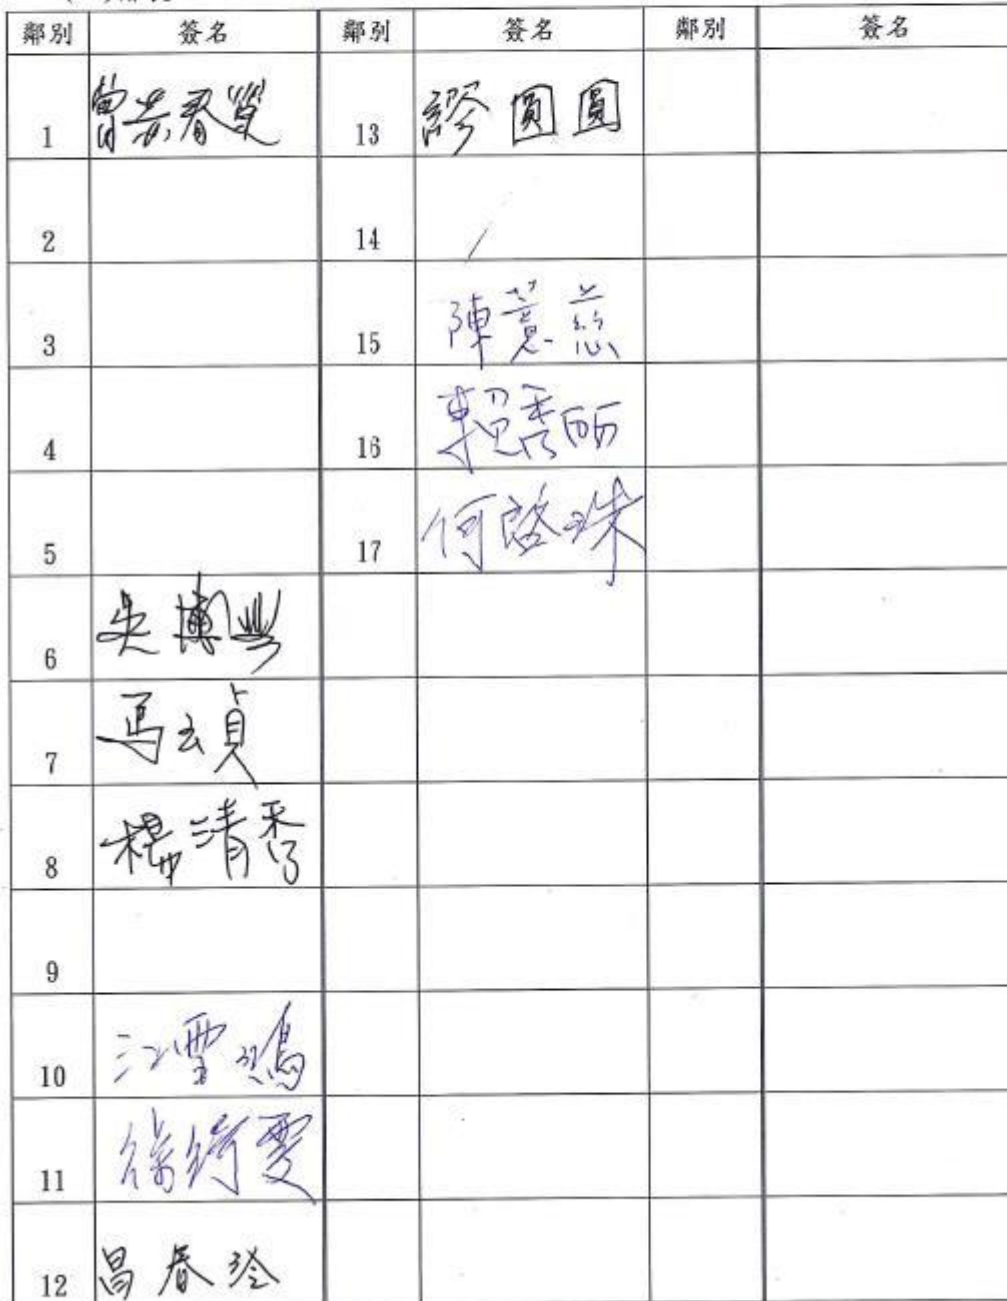 鄰別 簽名 鄰別 簽名 鄰別 簽名
1 曾 春 13 繆圓圓
2 14
3 15 陳薏慈
4 16 賴秀丽
5 17 何啓珠
6 吳博
7 馬玄貞
8 楊清秀
9
10 江雪鴻
11 徐綺雯
12 昌春玲